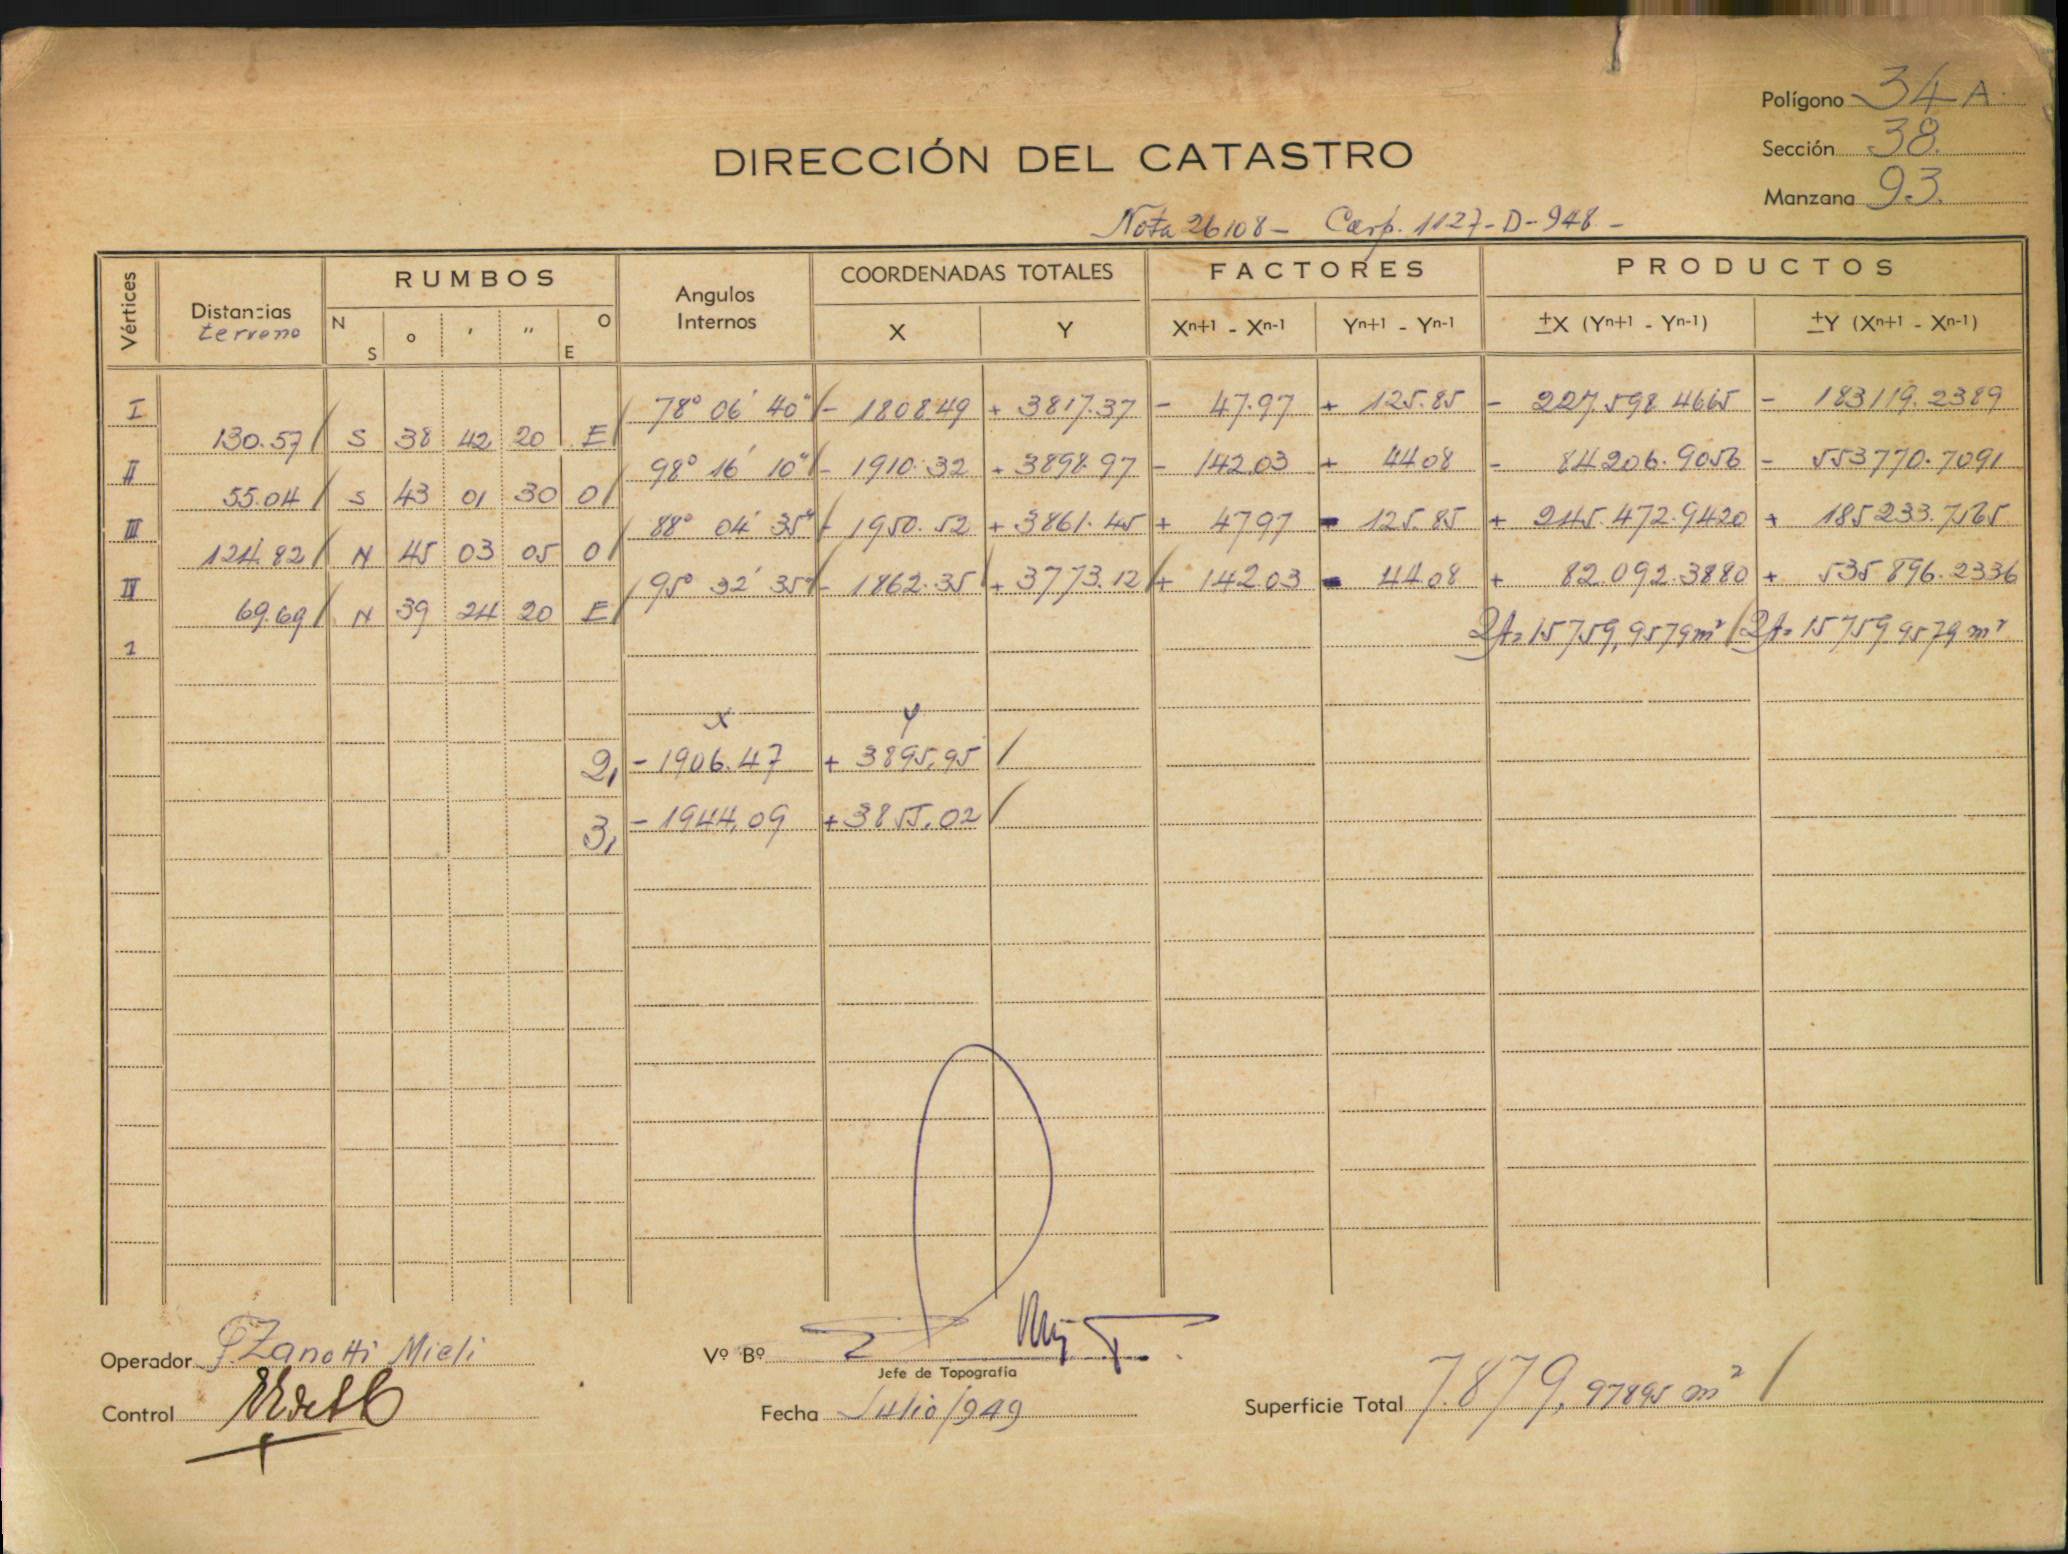 Polígono 34 A.
Sección 38.
DIRECCIÓN DEL CATASTRO
Manzana 93.
Nota 26108 - Carp. 1127-D-948 -
Vértices Distancias terreno RUMBOS Angulos Internos COORDENADAS TOTALES FACTORES PRODUCTOS
N S ° ' " O E X Y Xn+1 - Xn-1 Yn+1 - Yn-1 ±X (Yn+1 - Yn-1) ±Y (Xn+1 - Xn-1)
I 78° 06' 40" - 1808.49 + 3817.37 - 47.97 + 125.85 - 227.598.4665 - 183119.2389
130.57 S 38 42 20 E
II 98° 16' 10" - 1910.32 + 3898.97 - 142.03 + 44.08 - 84.206.9056 - 553770.7091
55.04 S 43 01 30 O
III 88° 04' 35" - 1950.52 + 3861.45 + 47.97 - 125.85 + 245.472.9420 + 185.233.7565
124.82 N 45 03 05 O
IV 95° 32' 35" - 1862.35 + 3773.12 + 142.03 - 44.08 + 82.092.3880 + 535.896.2336
69.69 N 39 24 20 E
2A= 15759,9579 m² 2A= 15759 9579 m²
1
X Y
2, - 1906.47 + 3895,95
3, - 1944,09 + 3855,02
Operador F. Zanotti Mieli
Vº Bº
Jefe de Topografía
Control
Fecha Julio/949
Superficie Total 7.879,97895 m²